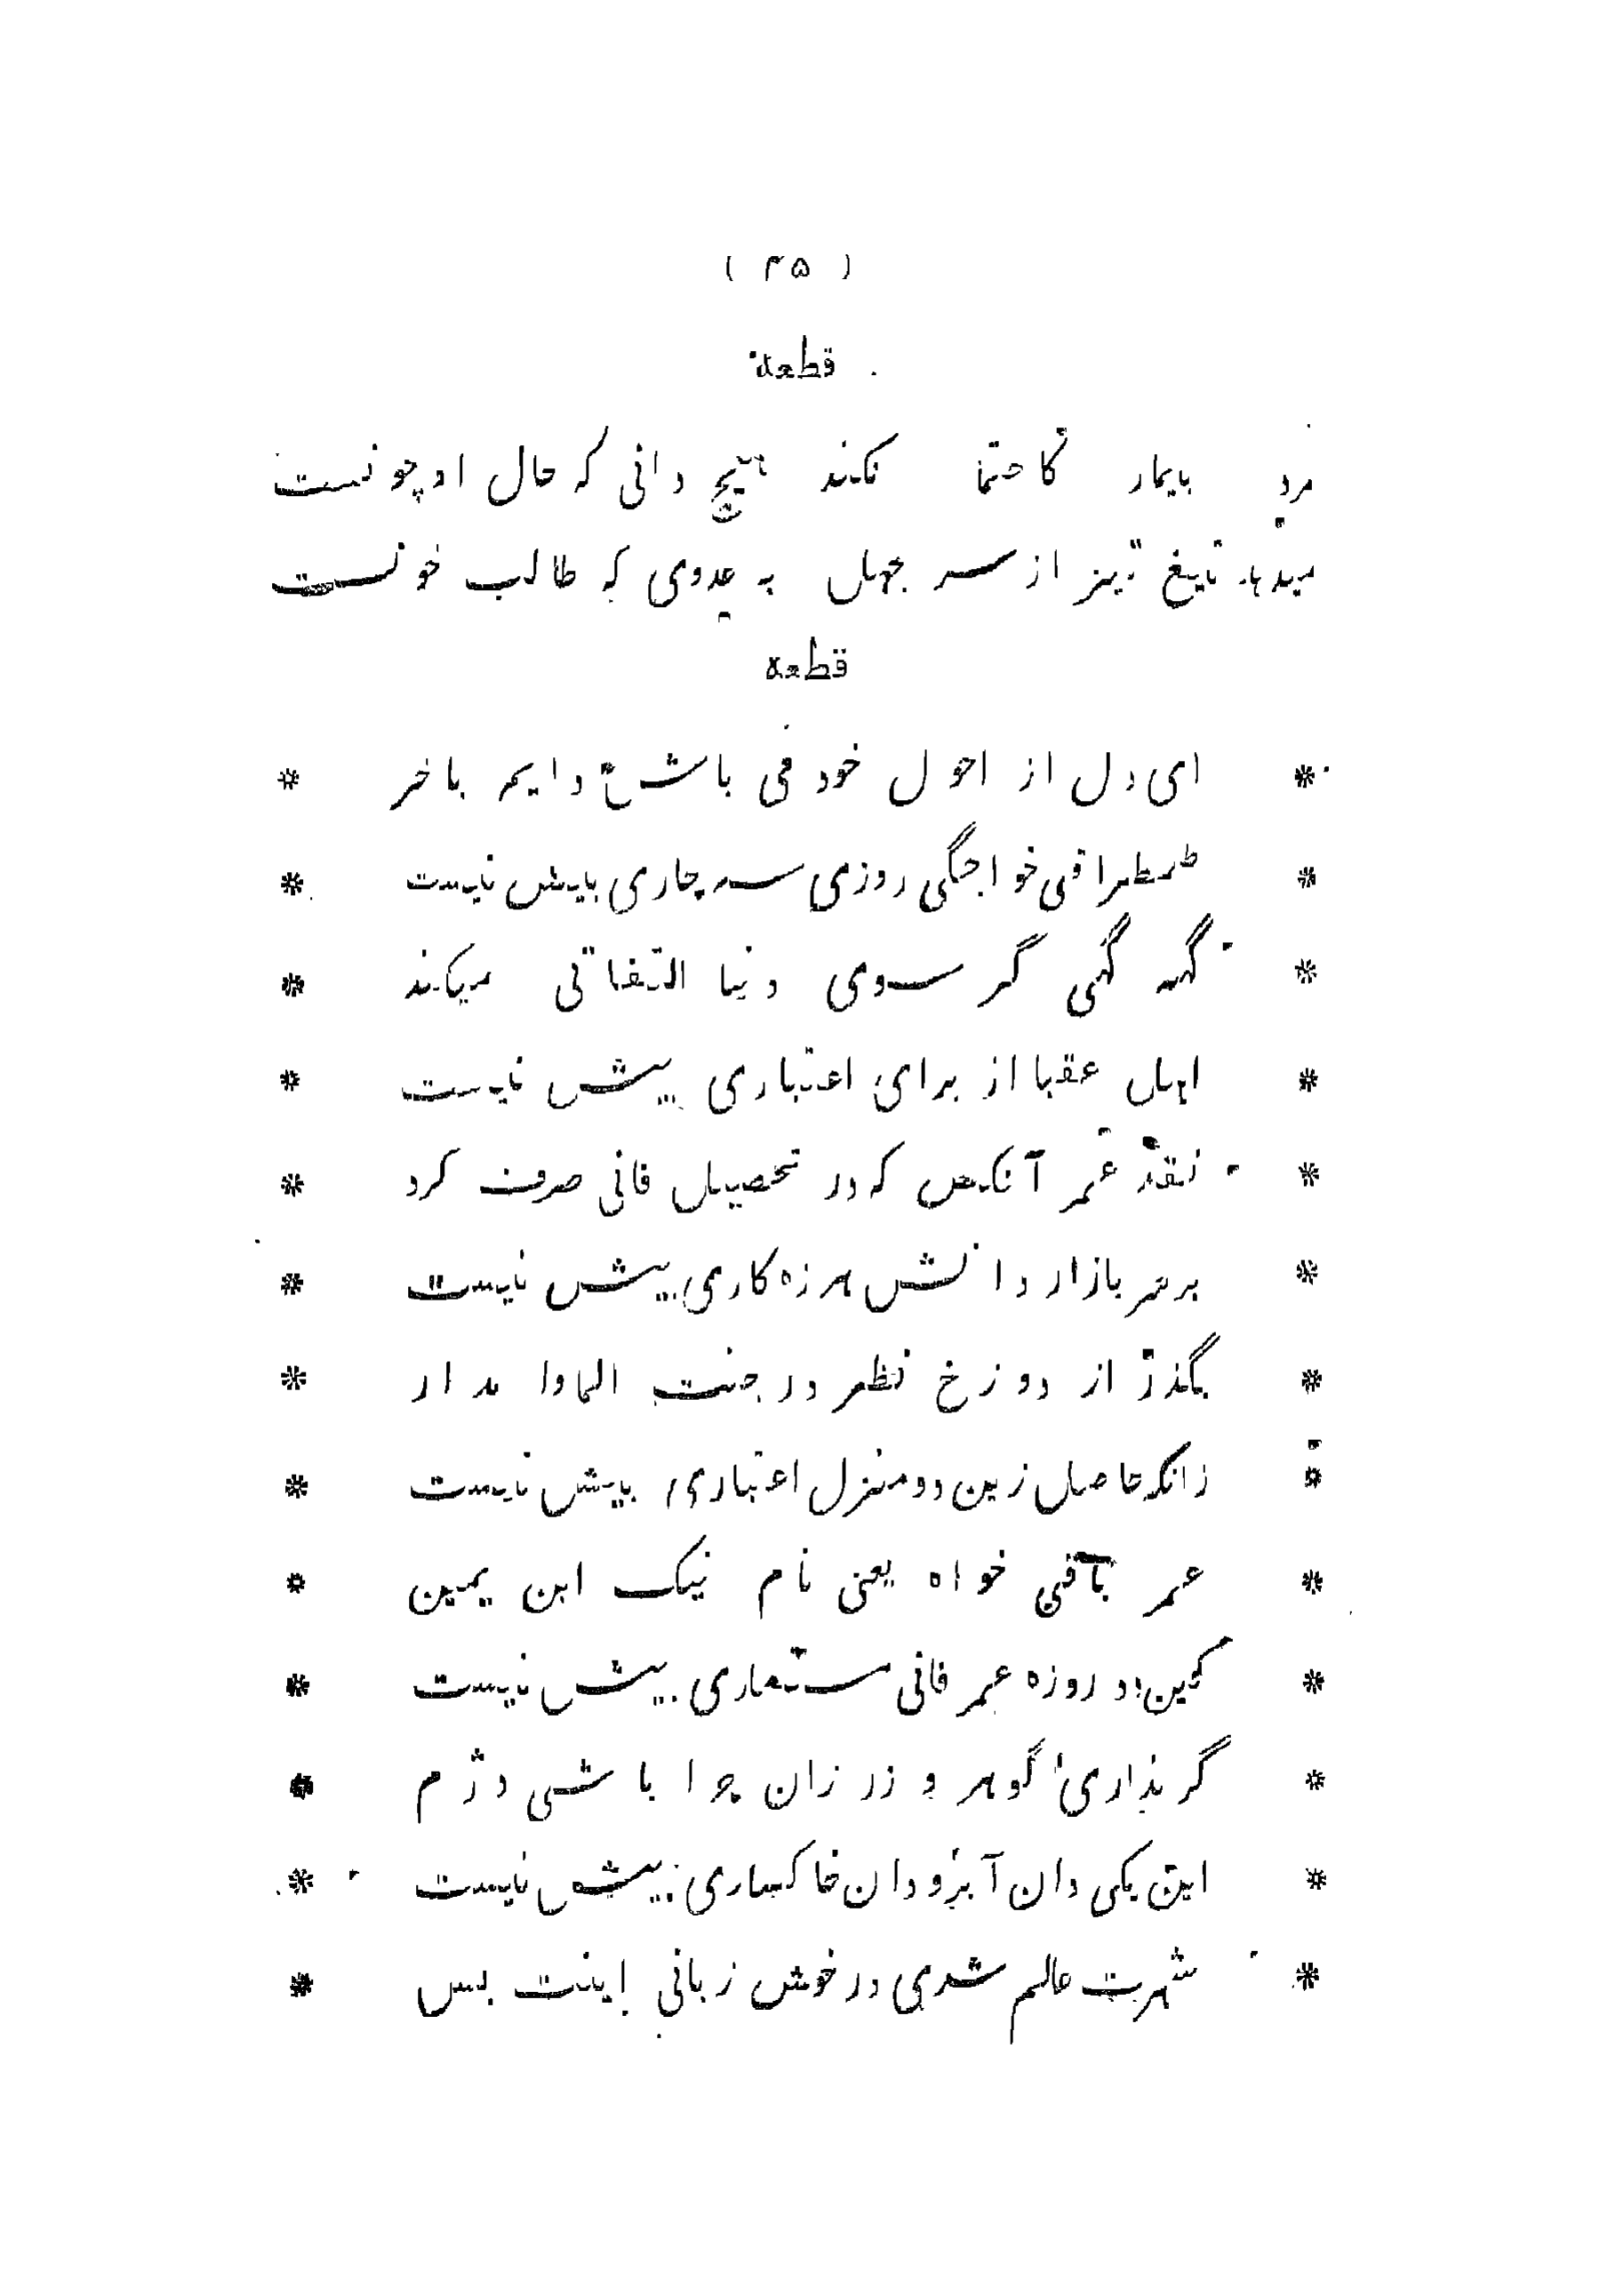 ( ۴۵ )
قطعه
مرد بیمار کاحتما نکند هیچ دانی که حال او چونست
میدهد تیغ تیز از سر جهل به عدوی که طالب خونست
قطعه
* ای دل از احول خود می باش دایم با خبر *
* طمطراقی خواجگی روزی سه چاری بیش نیست *
* گهه گهی گر سوی دنیا التفاتی میکند *
* اهل عقبا از برای اعتباری بیش نیست *
* نقد عمر آنکس که در تحصیل فانی صرف کرد *
* بر سر بازار دانش هرزه کاری بیش نیست *
* بگذر از دوزخ نظر در جنت الماوا مدار *
* زانکه حاصل زین دو منزل اعتباری بیش نیست *
* عمر باقی خواه یعنی نام نیک ابن یمین *
* کین دو روزه عمر فانی مستعاری بیش نیست *
* گر نداری گوهر و زر زان چرا باشی دژم *
* این یکی دان آبرو دان خاکساری بیش نیست *
* شهرت عالم شدی در خوش زبانی اینت بس *